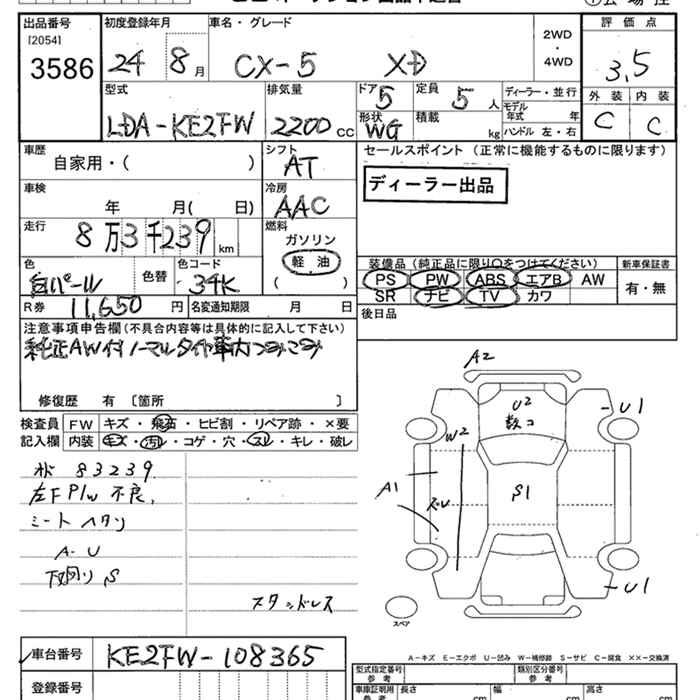 出品番号 初度登録年月 車名・グレード 評価点
[2054]
3586
24 8月 CX-5 XD 2WD・4WD 3.5
型式 排気量 ドア 5 定員 5人 ディーラー・並行 外装 内装
LDA-KE2FW 2200CC 形状 WG 積載 kg モデル年式 年 C C
ハンドル 左・右
車歴 シフト セールスポイント (正常に機能するものに限ります)
自家用・( ) AT
ディーラー出品
車検 冷房
年 月( 日) AAC
走行 燃料
8万3千239km ガソリン
軽油
( )
色 色替 色コード
白パール 34K
装備品 (純正品に限り○をつけてください) 新車保証書
PS PW ABS エアB AW 有・無
SR ナビ TV カワ
R券 11,650円 名変通知期限 月 日
後日品
注意事項申告欄 (不具合内容等は具体的に記入して下さい)
純正AW付ノーマルタイヤ車内つみこみ
修復歴 有 [箇所 ]
検査員記入欄 FW キズ・飛石・ヒビ割・リペア跡・×要
内装 キズ・汚れ・コゲ・穴・スレ・キレ・破レ
83239
左F P/w 不良
シートヘタリ
A-U
下廻り S
スタッドレス
A2
U2
数コ
U1
W2
A1
ズレ
S1
U1
スペア
A-キズ E-エクボ U-凹み W-補修跡 S-サビ C-腐食 ××-交換済
車台番号 KE2FW-108365
登録番号
型式指定番号 参考
類別区分番号 参考
車庫証明用 参考 長さ cm 幅 cm 高さ cm